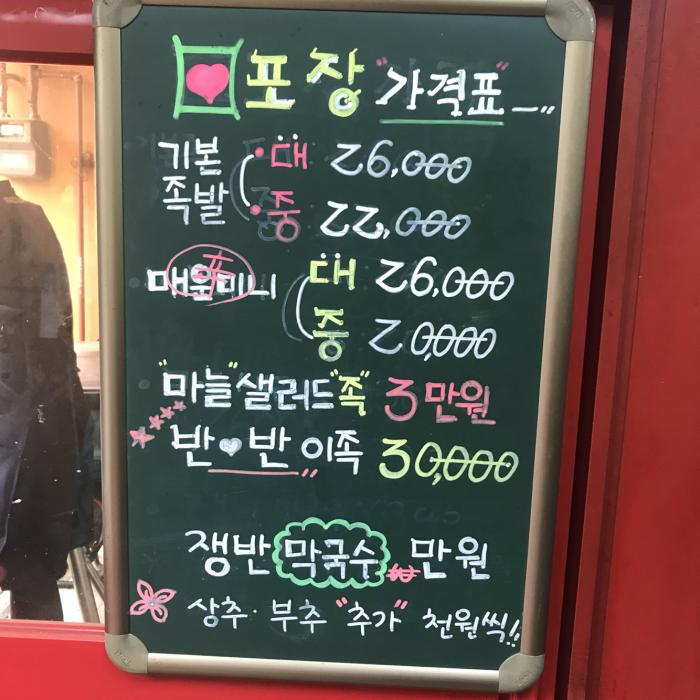 포장 "가격표"
기본 대 26,000
족발 중 22,000
매운미니 대 26,000
중 20,000
"마늘"샐러드"족" 3만원
반♥반이족 30,000
쟁반 막국수 ₩ 만원
상추·부추 "추가" 천원씩!!